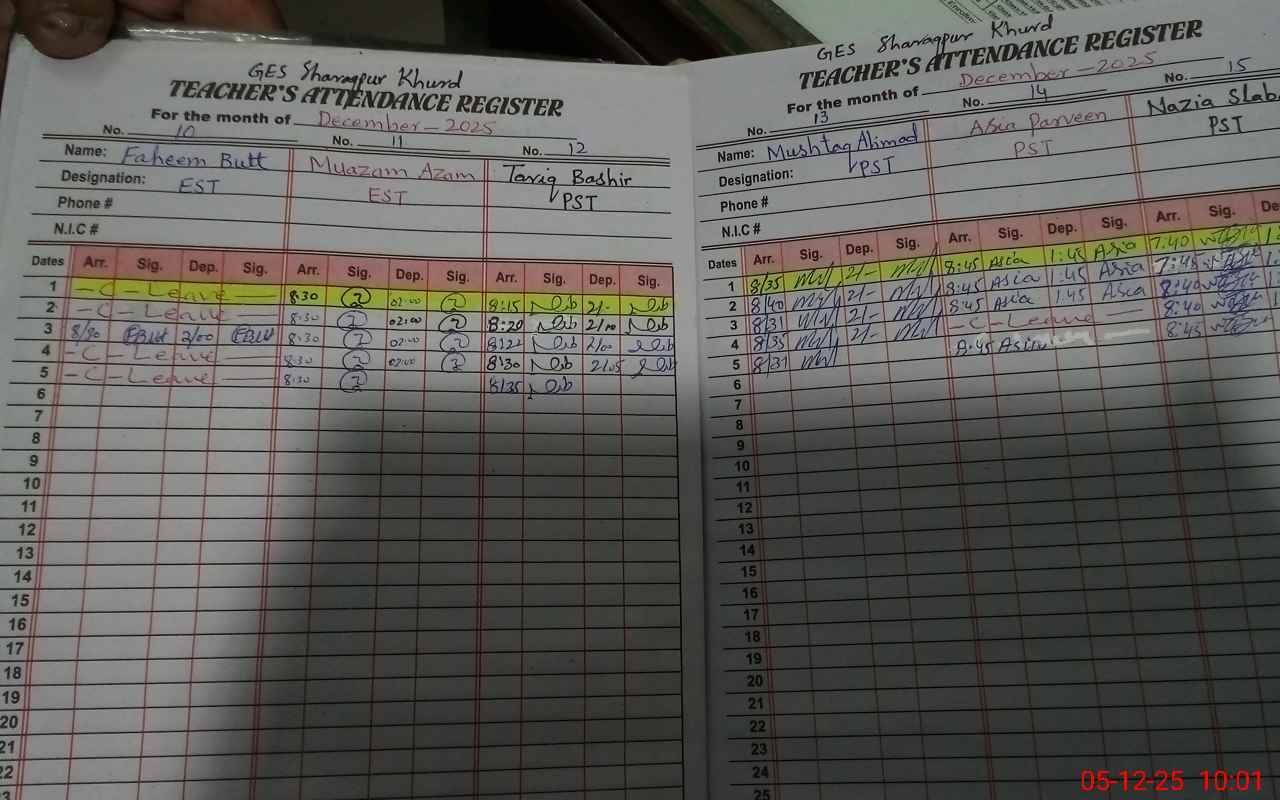 GES Sharaqpur Khurd
TEACHER'S ATTENDANCE REGISTER
For the month of December - 2025
No. 10 No. 11 No. 12
Name: Faheem Butt Muazam Azam Tariq Bashir
Designation: EST EST PST
Phone #
N.I.C #
Dates Arr. Sig. Dep. Sig. Arr. Sig. Dep. Sig. Arr. Sig. Dep. Sig.
1 - C - Leave 8:30 02:00 8:15 2/-
2 - C - Leave 8:30 02:00 8:20 2/00
3 8/30 2/00 8:30 02:00 2/00
4 - C - Leave 8:30 02:00 8:30 2/05
5 - C - Leave 8:30 8/35
6
7
8
9
10
11
12
13
14
15
16
17
18
19
20
21
22
GES Sharaqpur Khurd
TEACHER'S ATTENDANCE REGISTER
For the month of December - 2025
No. 13 No. 14 No. 15
Name: Mushtaq Ahmad Asia Parveen Nazia
Designation: PST PST PST
Phone #
N.I.C #
Dates Arr. Sig. Dep. Sig. Arr. Sig. Dep. Sig. Arr. Sig.
1 8/35 2/- 8:45 Asia 1:45 Asia 7:40
2 8/40 2/- 8:45 Asia 1:45 Asia 7:45
3 8/31 2/- 8:45 Asia 1:45 Asia 8:40
4 8/35 2/- - C - Leave 8:40
5 8/31 8:45 8:45
6
7
8
9
10
11
12
13
14
15
16
17
18
19
20
21
22
23
24
25
05-12-25 10:01